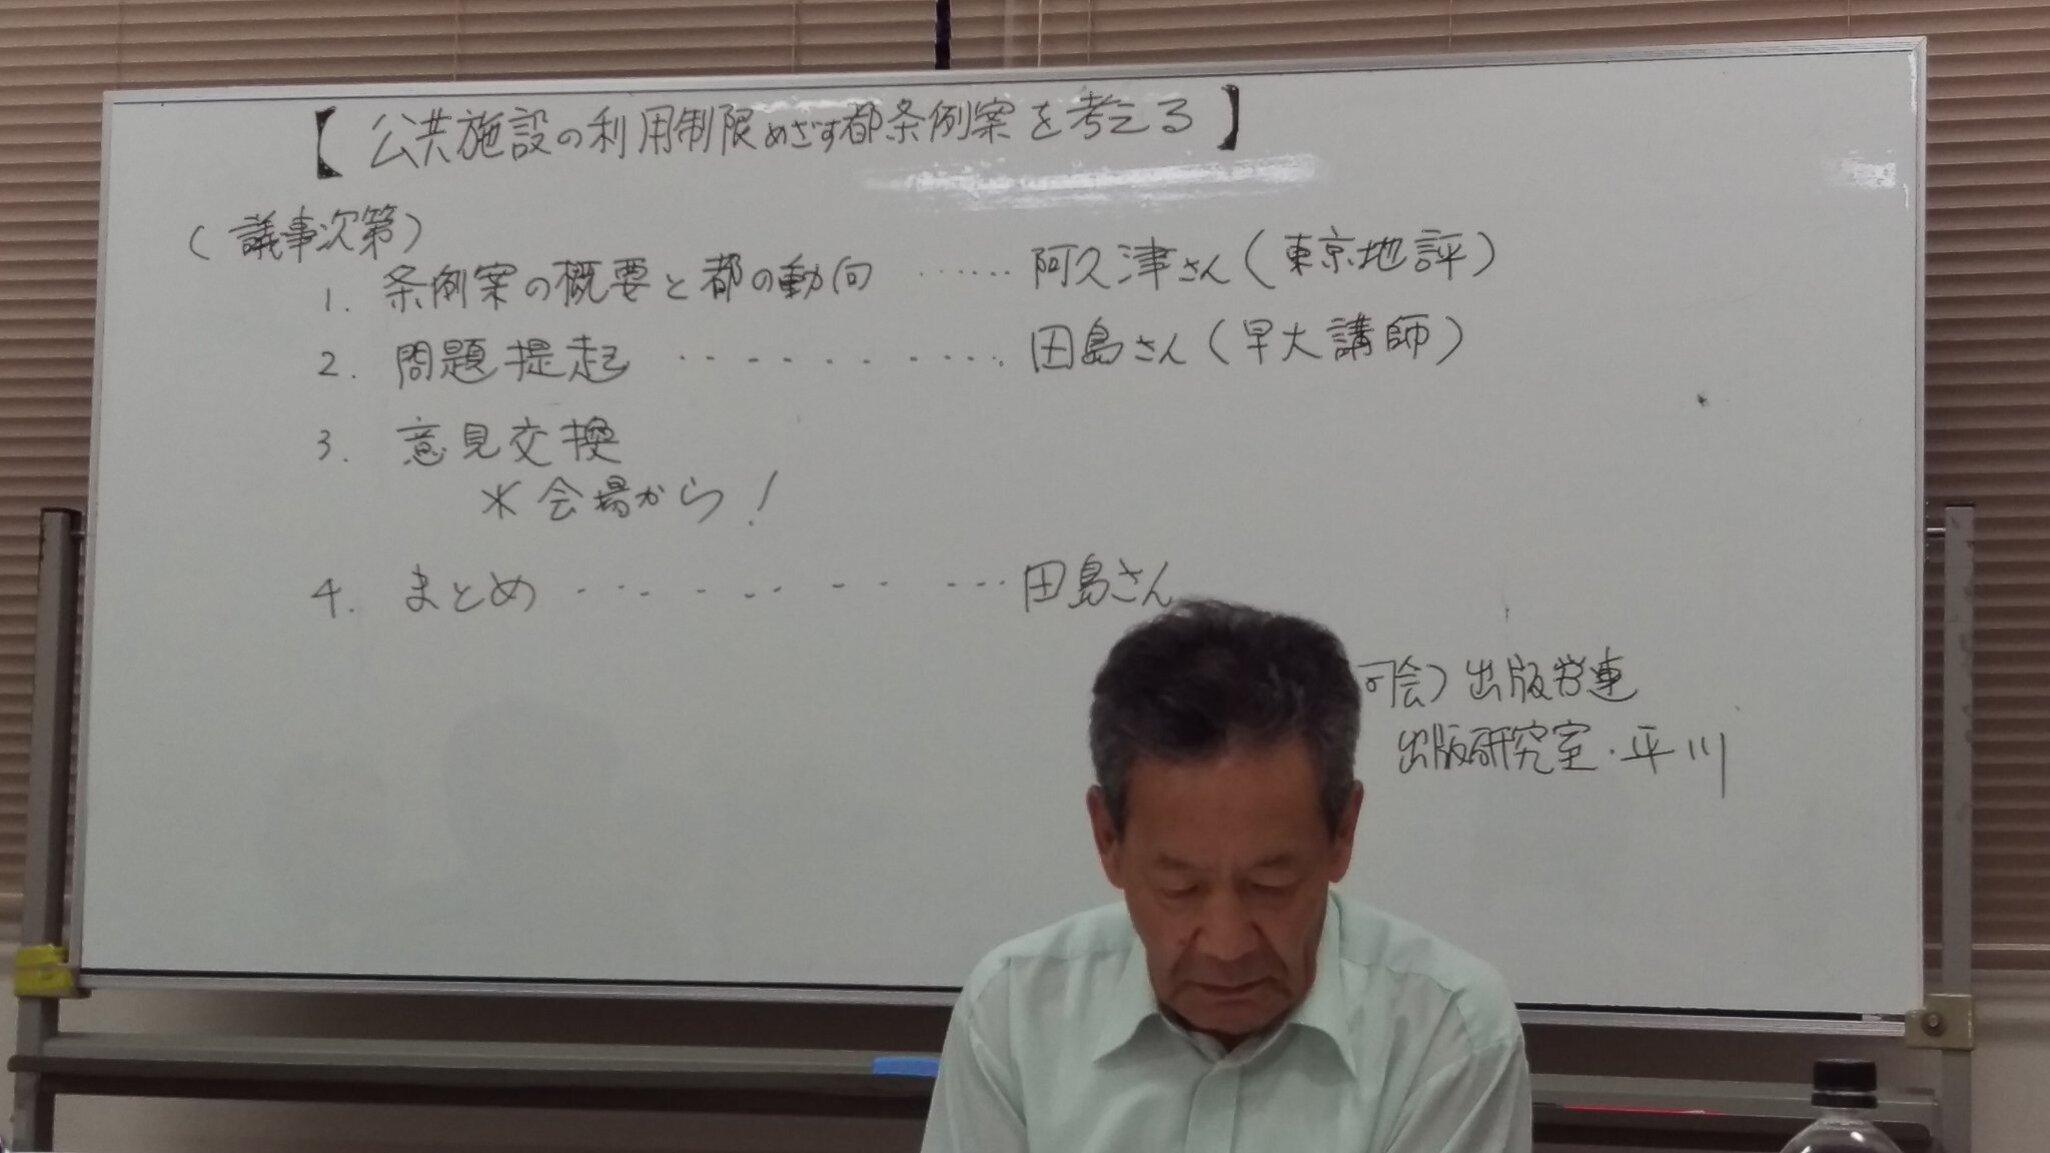 【公共施設の利用制限めざす都条例案を考える】
(議事次第)
1. 条例案の概要と都の動向 ...... 阿久津さん(東京地評)
2. 問題提起 .......... 田島さん(早大講師)
3. 意見交換
※ 会場から!
4. まとめ .......... 田島さん
司会) 出版労連
出版研究室・平川